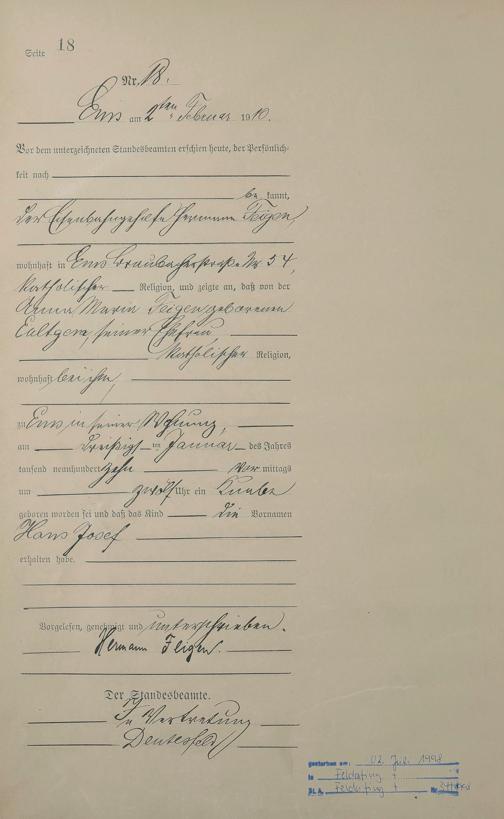 Seite 18
Nr. 18.
Ems am 2ten Februar 1910.
Vor dem unterzeichneten Standesbeamten erschien heute, der Persönlich-
keit nach
be kannt,
der Eisenbahngehilfe Hermann
wohnhaft in Ems Braubacherstraße Nr 54,
katholischer Religion, und zeigte an, daß von der
Anna Maria geborenen
seiner Ehefrau,
katholischer Religion,
wohnhaft bei ihm,
zu Ems in seiner Wohnung,
am dreißigsten Januar des Jahres
tausend neunhundert zehn Vor mittags
um zwölf Uhr ein Knabe
geboren worden sei und daß das Kind die Vornamen
Hans Josef
erhalten habe.
Vorgelesen, genehmigt und unterschrieben.
Hermann
Der Standesbeamte.
In Vertretung
gestorben am: 02. Juli 1998
in Feldafing
St. A. Feldafing Nr.